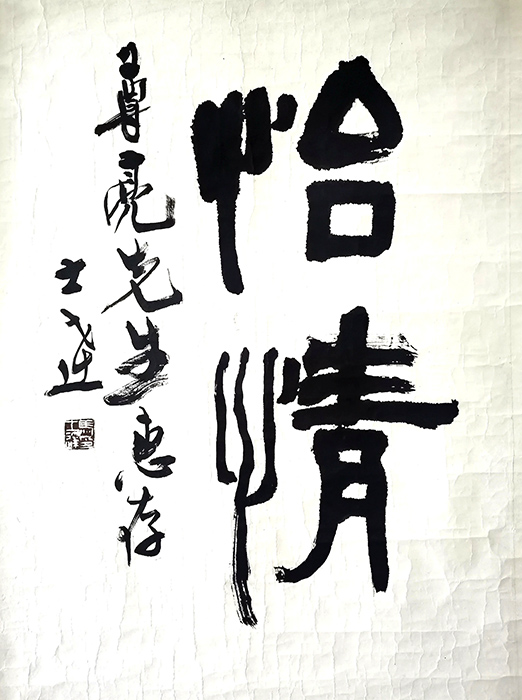 怡情
尊亮先生惠存
士达